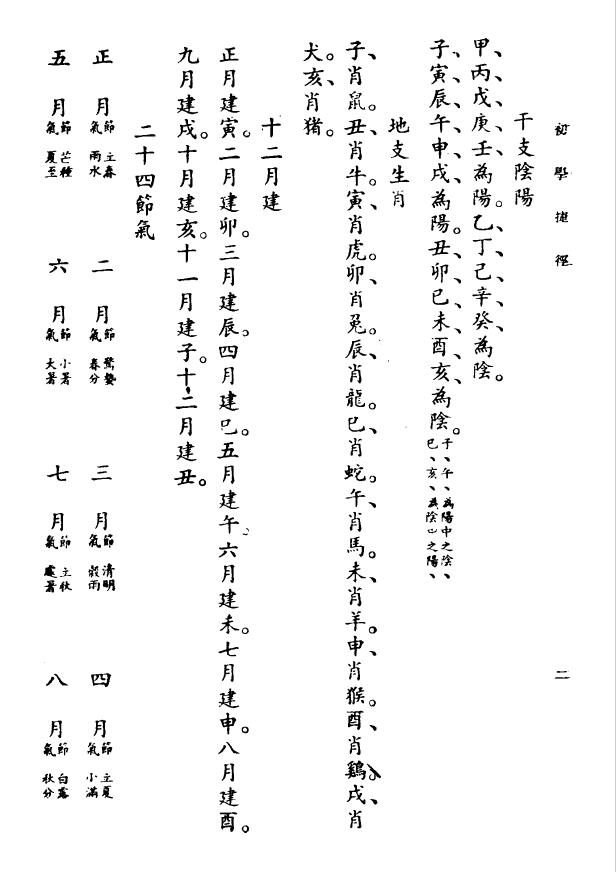 初學捷徑
二
干支陰陽
甲、丙、戊、庚、壬為陽。乙、丁、己、辛、癸為陰。
子、寅、辰、午、申、戌、為陽。丑、卯、巳、未、酉、亥、為陰。子、午、為陽中之陰、
巳、亥、為陰中之陽、
地支生肖
子、肖鼠。丑、肖牛。寅、肖虎。卯、肖兔。辰、肖龍。巳、肖蛇。午、肖馬。未、肖羊。申、肖猴。酉、肖鷄。戌、肖
犬。亥、肖猪。
十二月建
正月建寅。二月建卯。三月建辰。四月建巳。五月建午。六月建未。七月建申。八月建酉。
九月建戌。十月建亥。十一月建子。十二月建丑。
二十四節氣
正月節立春氣雨水 二月節驚蟄氣春分 三月節清明氣穀雨 四月節立夏氣小滿
五月節芒種氣夏至 六月節小暑氣大暑 七月節立秋氣處暑 八月節白露氣秋分